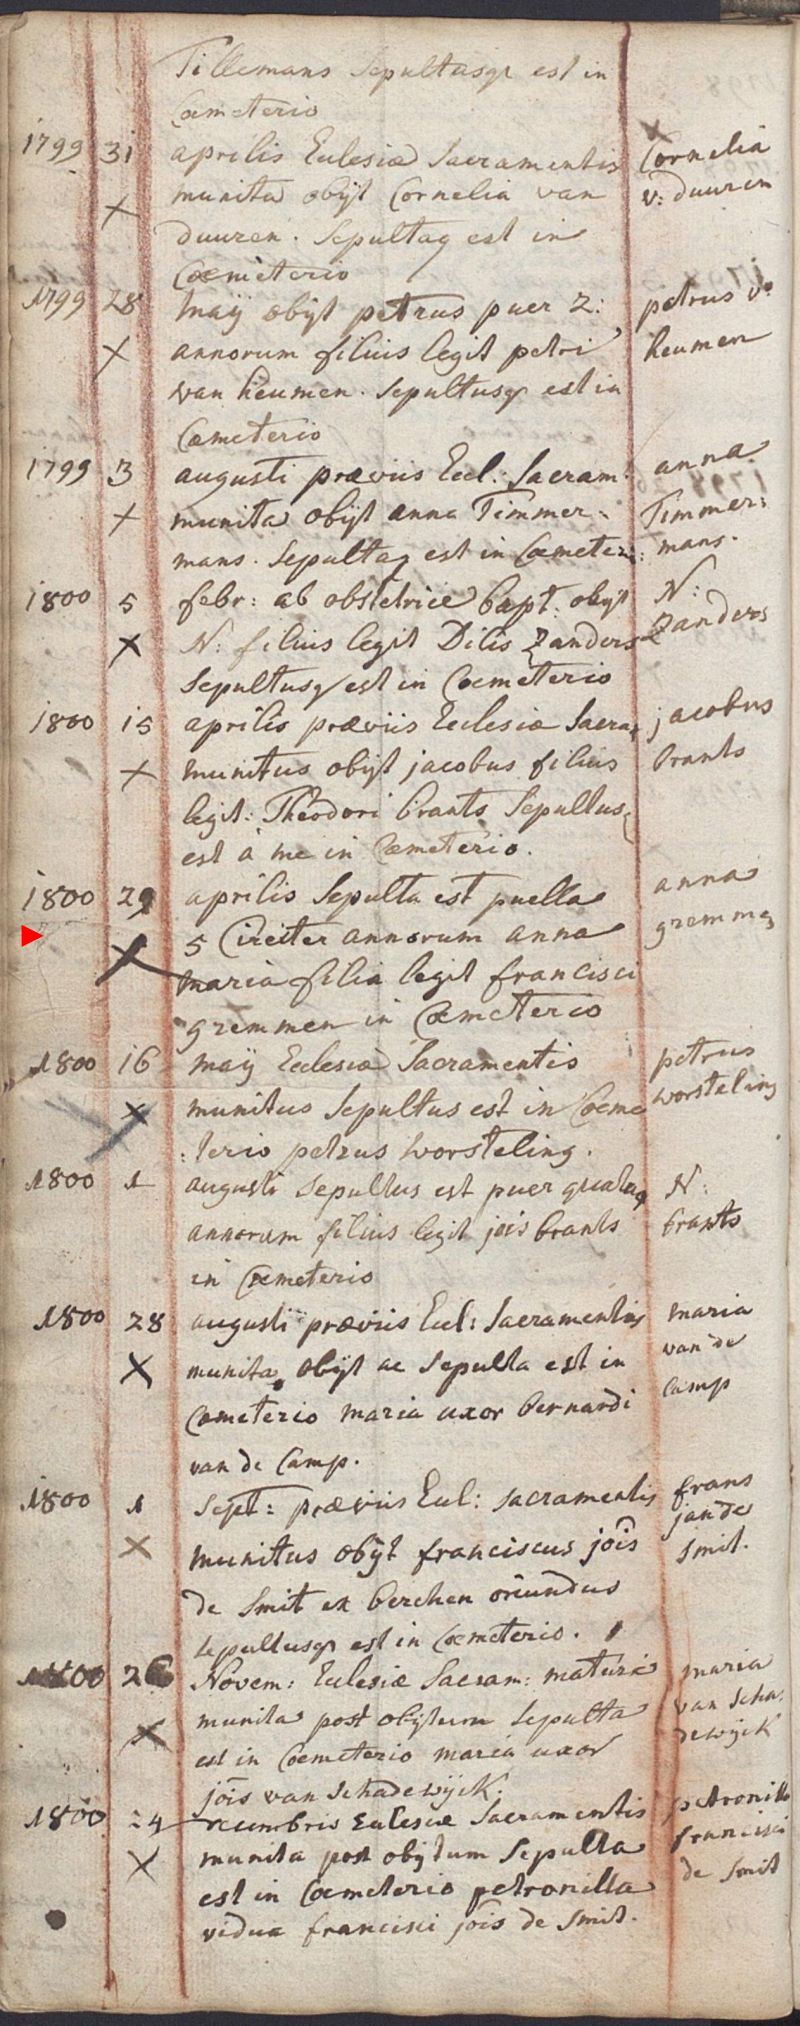 Tillemans Sepultusq est in
Cœmeterio
1799 31 aprilis Eclesiæ Sacramentis Cornelia
munita obijt Cornelia van v: duuren
duuren. Sepultaq est in
Cœmeterio
1799 28 maÿ obijt petrus puer 2: petrus v:
annorum filius legit petri heumen
van heumen. Sepultusq est in
Cœmeterio
1799 3 augusti præviis Eccl: Sacram: anna
munita obijt anna Timmer- Timmer:
mans. Sepultaq est in Cœmeter: mans.
1800 5 febr: ab obstetrice bapt: obijt N:
N: filius legit Dilis Zanders Zanders
Sepultusq est in Cœmeterio
1800 15 aprilis præviis Eclesiæ Sacra jacobus
munitus obijt jacobus filius brants
legit: Theodori brants Sepultus
est à me in Cœmeterio.
1800 29 aprilis Sepulta est puella anna
5 Circiter annorum anna gremmen
maria filia legit francisci
gremmen in Cœmeterio
1800 16 maÿ Eclesiæ Sacramentis petrus
munitus Sepultus est in Cœme worsteling
:terio petrus worsteling.
1800 1 augusti Sepultus est puer quatuor N:
annorum filius legit jois brants brants
in Cœmeterio
1800 28 augusti præviis Eccl: Sacramentis maria
munita obijt ac Sepulta est in van de
Cœmeterio maria uxor bernardi Camp
van de Camp.
1800 1 Sept: præviis Ecl: sacramentis frans
munitus obijt franciscus jois jan de
de Smit ex berchen oriundus Smit.
sepultusq est in Cœmeterio.
1800 26 Novem: Eclesiæ Sacram: maturè maria
munita post obijtum Sepulta van Scha:
est in Cœmeterio maria uxor dewijck
jois van Schadewijck.
1800 24 Sacramentis petronilla
munita post obijtum Sepulta francisci
est in Cœmeterio petronilla de Smit
vidua francisci jois de Smit.